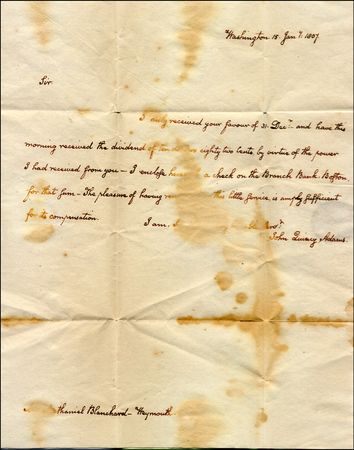 Washington 15 Jany. 1807
Sir
I duly received your favour of 31 Decr. and have this
morning received the dividend of eighty two cents by virtue of the power
I had received from you — I enclose a check on the Branch Bank Boston
for that sum — The pleasure of having this little service, is amply sufficient
for its compensation.
I am,
John Quincy Adams.
thaniel Blanchard — Weymouth